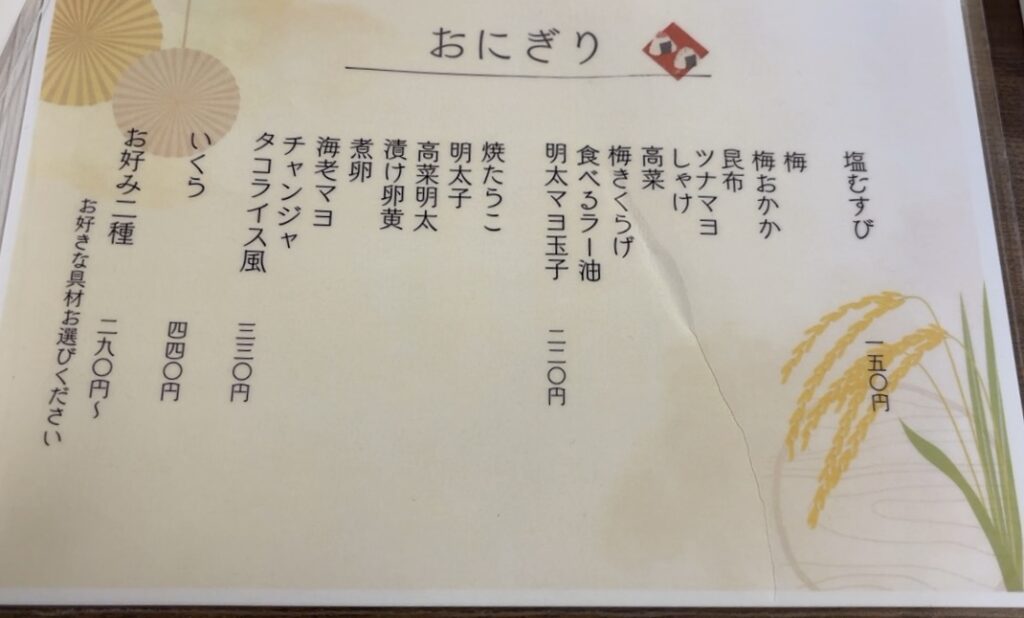 おにぎり
塩むすび 一五〇円
梅
梅おかか
昆布
ツナマヨ
しゃけ
高菜
梅きくらげ
食べるラー油
明太マヨ玉子 二二〇円
焼たらこ
明太子
高菜明太
漬け卵黄
煮卵
海老マヨ
チャンジャ
タコライス風 三三〇円
いくら 四四〇円
お好み二種 二九〇円〜
お好きな具材お選びください